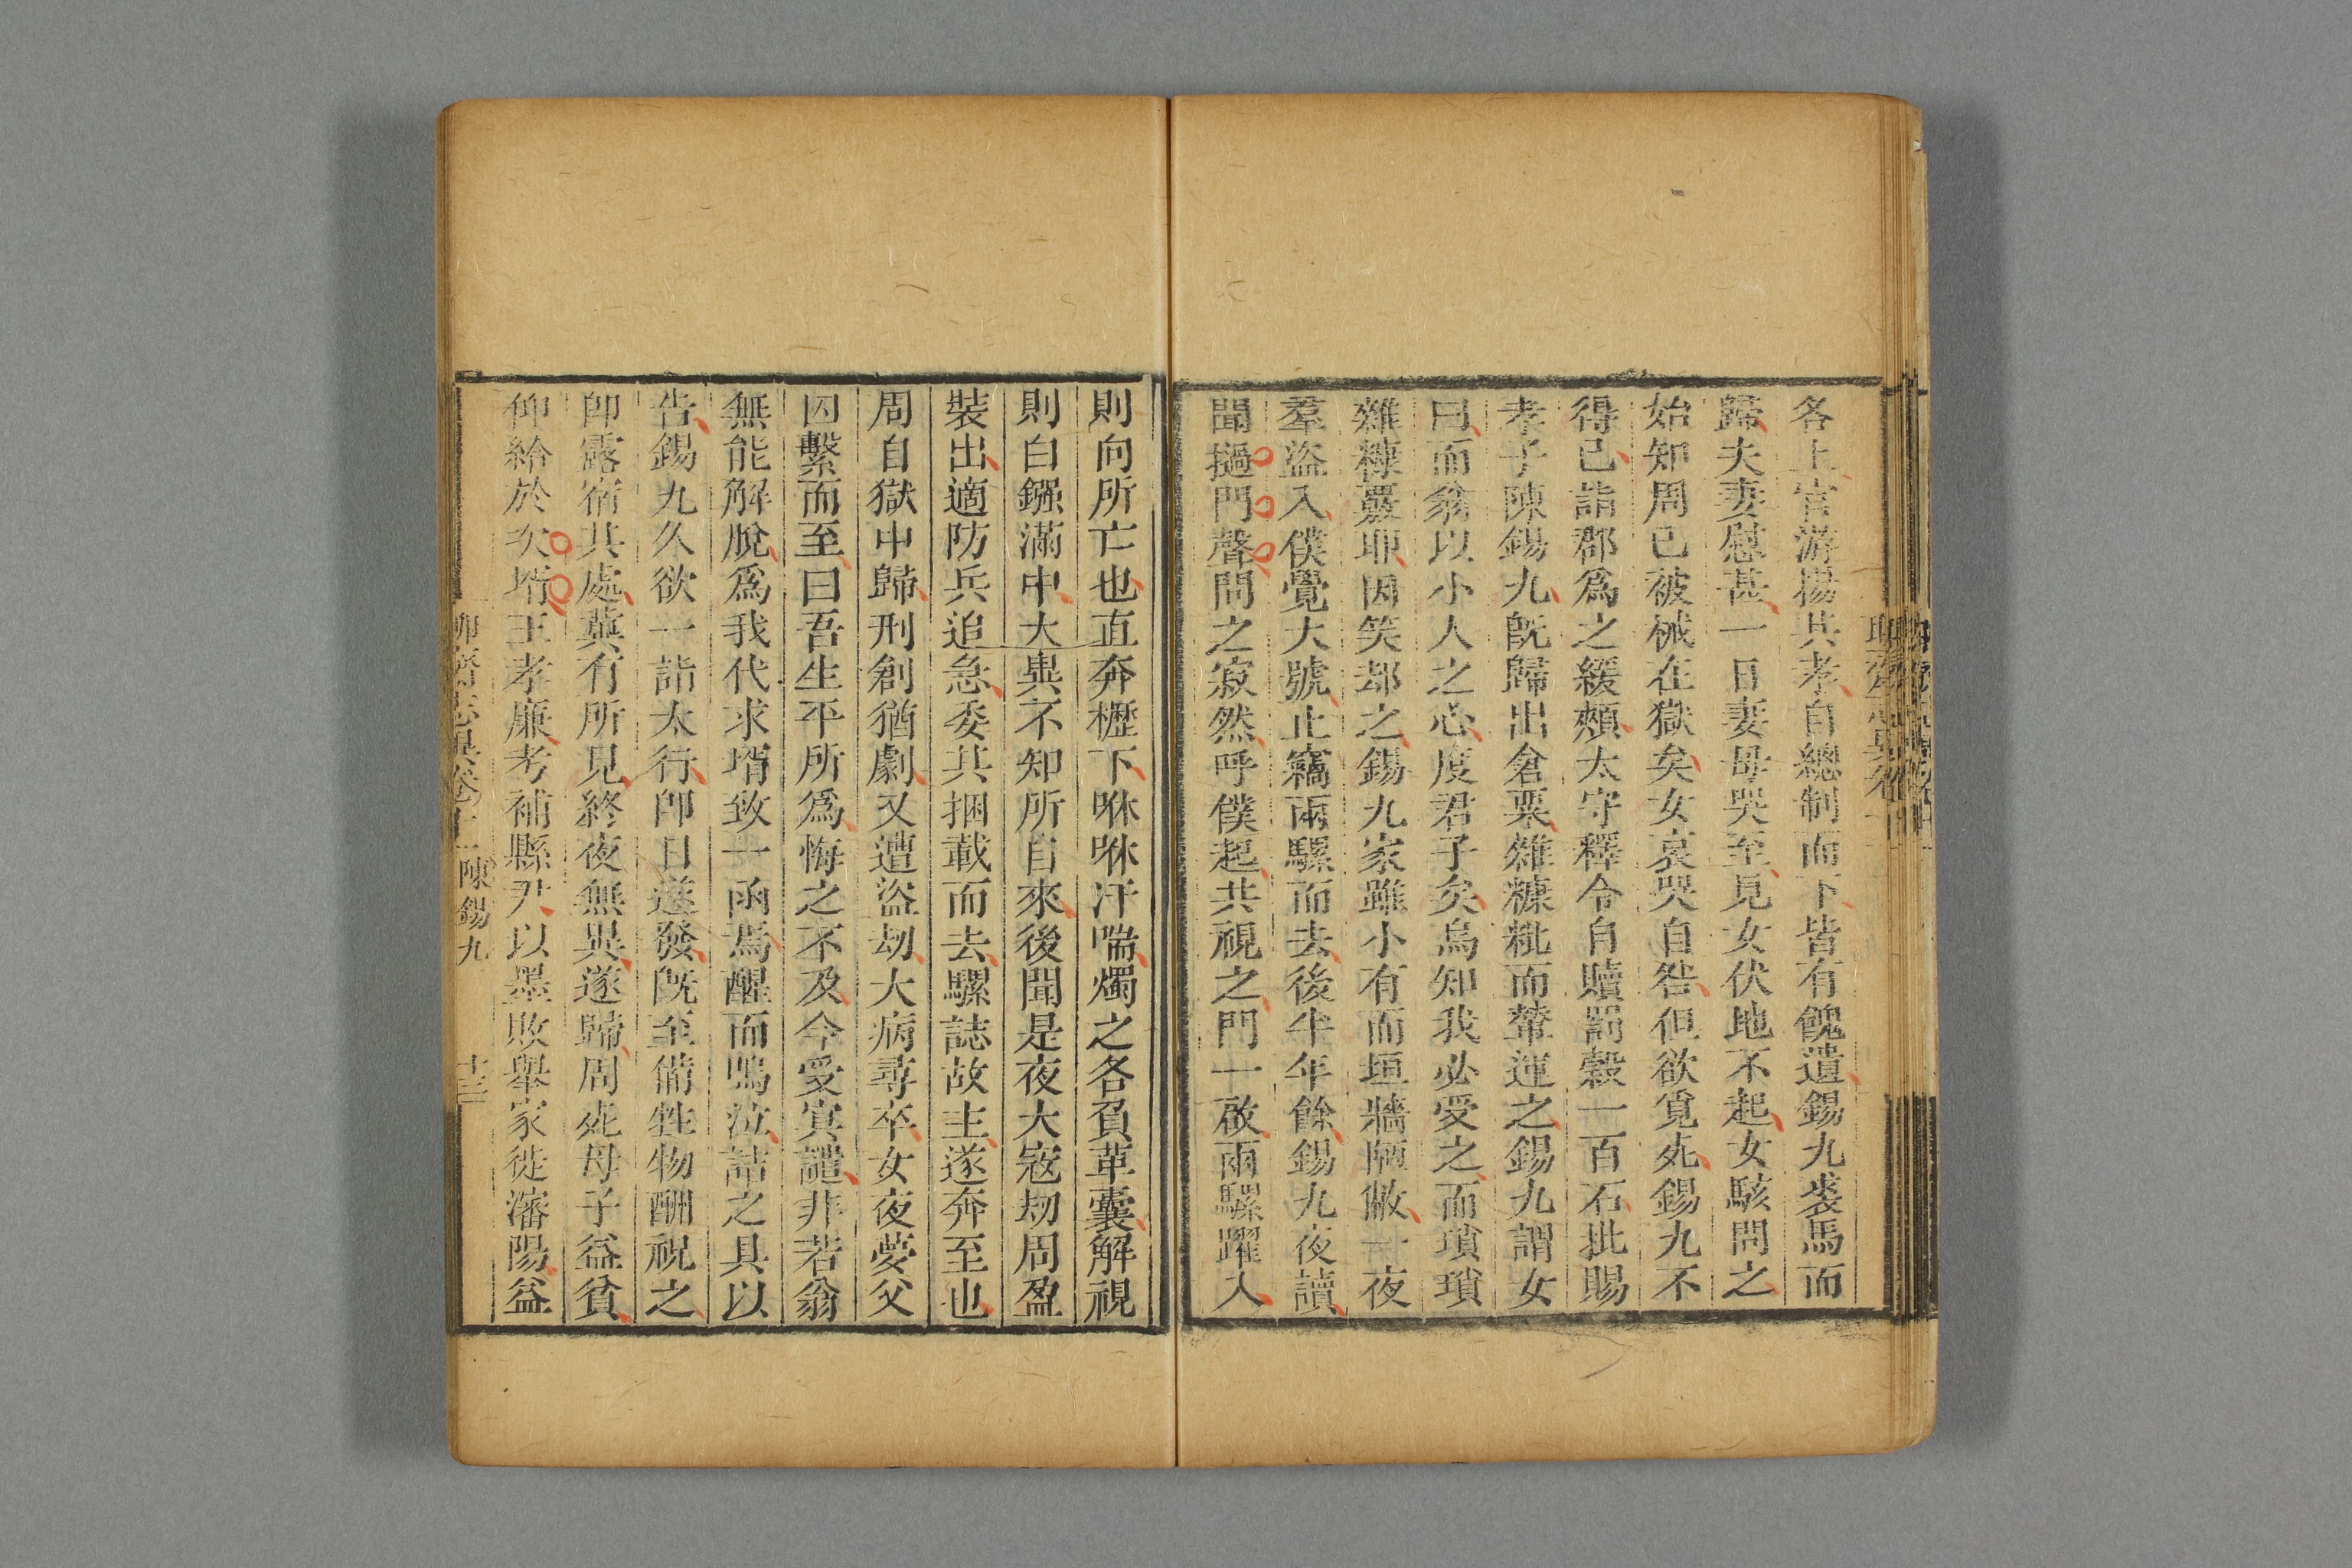 各上官游揚其孝自總制而下皆有餽遺錫九裘馬而
歸夫妻慰甚一日妻母哭至見女伏地不起女駭問之
始知周已被械在獄矣女哀哭自咎但欲覓死錫九不
得已詣郡爲之緩頰太守釋令自贖罰穀一百石批賜
孝子陳錫九旣歸出倉粟雜糠粃而輦運之錫九謂女
曰而翁以小人之心度君子矣烏知我必受之而瑣瑣
雜糠覈耶因笑却之錫九家雖小有而垣牆陋敝一夜
羣盜入僕覺大號止竊兩騾而去後半年餘錫九夜讀
聞撾門聲問之寂然呼僕起共視之門一啟兩騾躍入
則向所亡也直奔櫪下咻咻汗喘燭之各負革囊解視
則白鏹滿中大異不知所自來後聞是夜大寇刧周盈
裝出適防兵追急委其捆載而去騾誌故主遂奔至也
周自獄中歸刑創猶劇又遭盜刧大病尋卒女夜夢父
囚繫而至曰吾生平所爲悔之不及今受冥譴非若翁
無能解脫爲我代求壻致一函焉醒而嗚泣詰之具以
告錫九久欲一詣太行卽日遂發旣至備牲物酬祝之
卽露宿其處冀有所見終夜無異遂歸周死母子益貧
仰給於次壻王孝廉考補縣尹以墨敗舉家徙瀋陽益
聊齋志異卷十一 陳錫九 十三